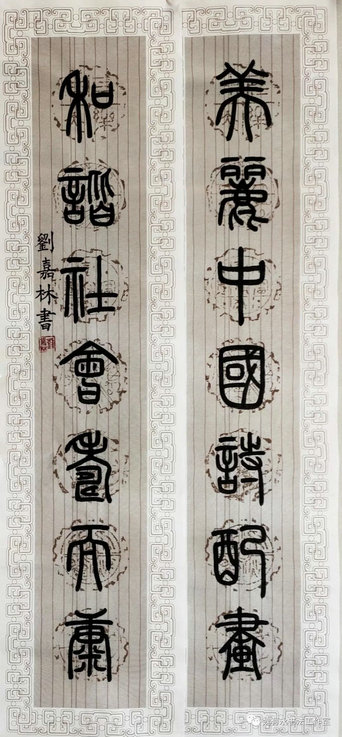 美麗中國詩配畫
和諧社會壽而康
劉嘉林書